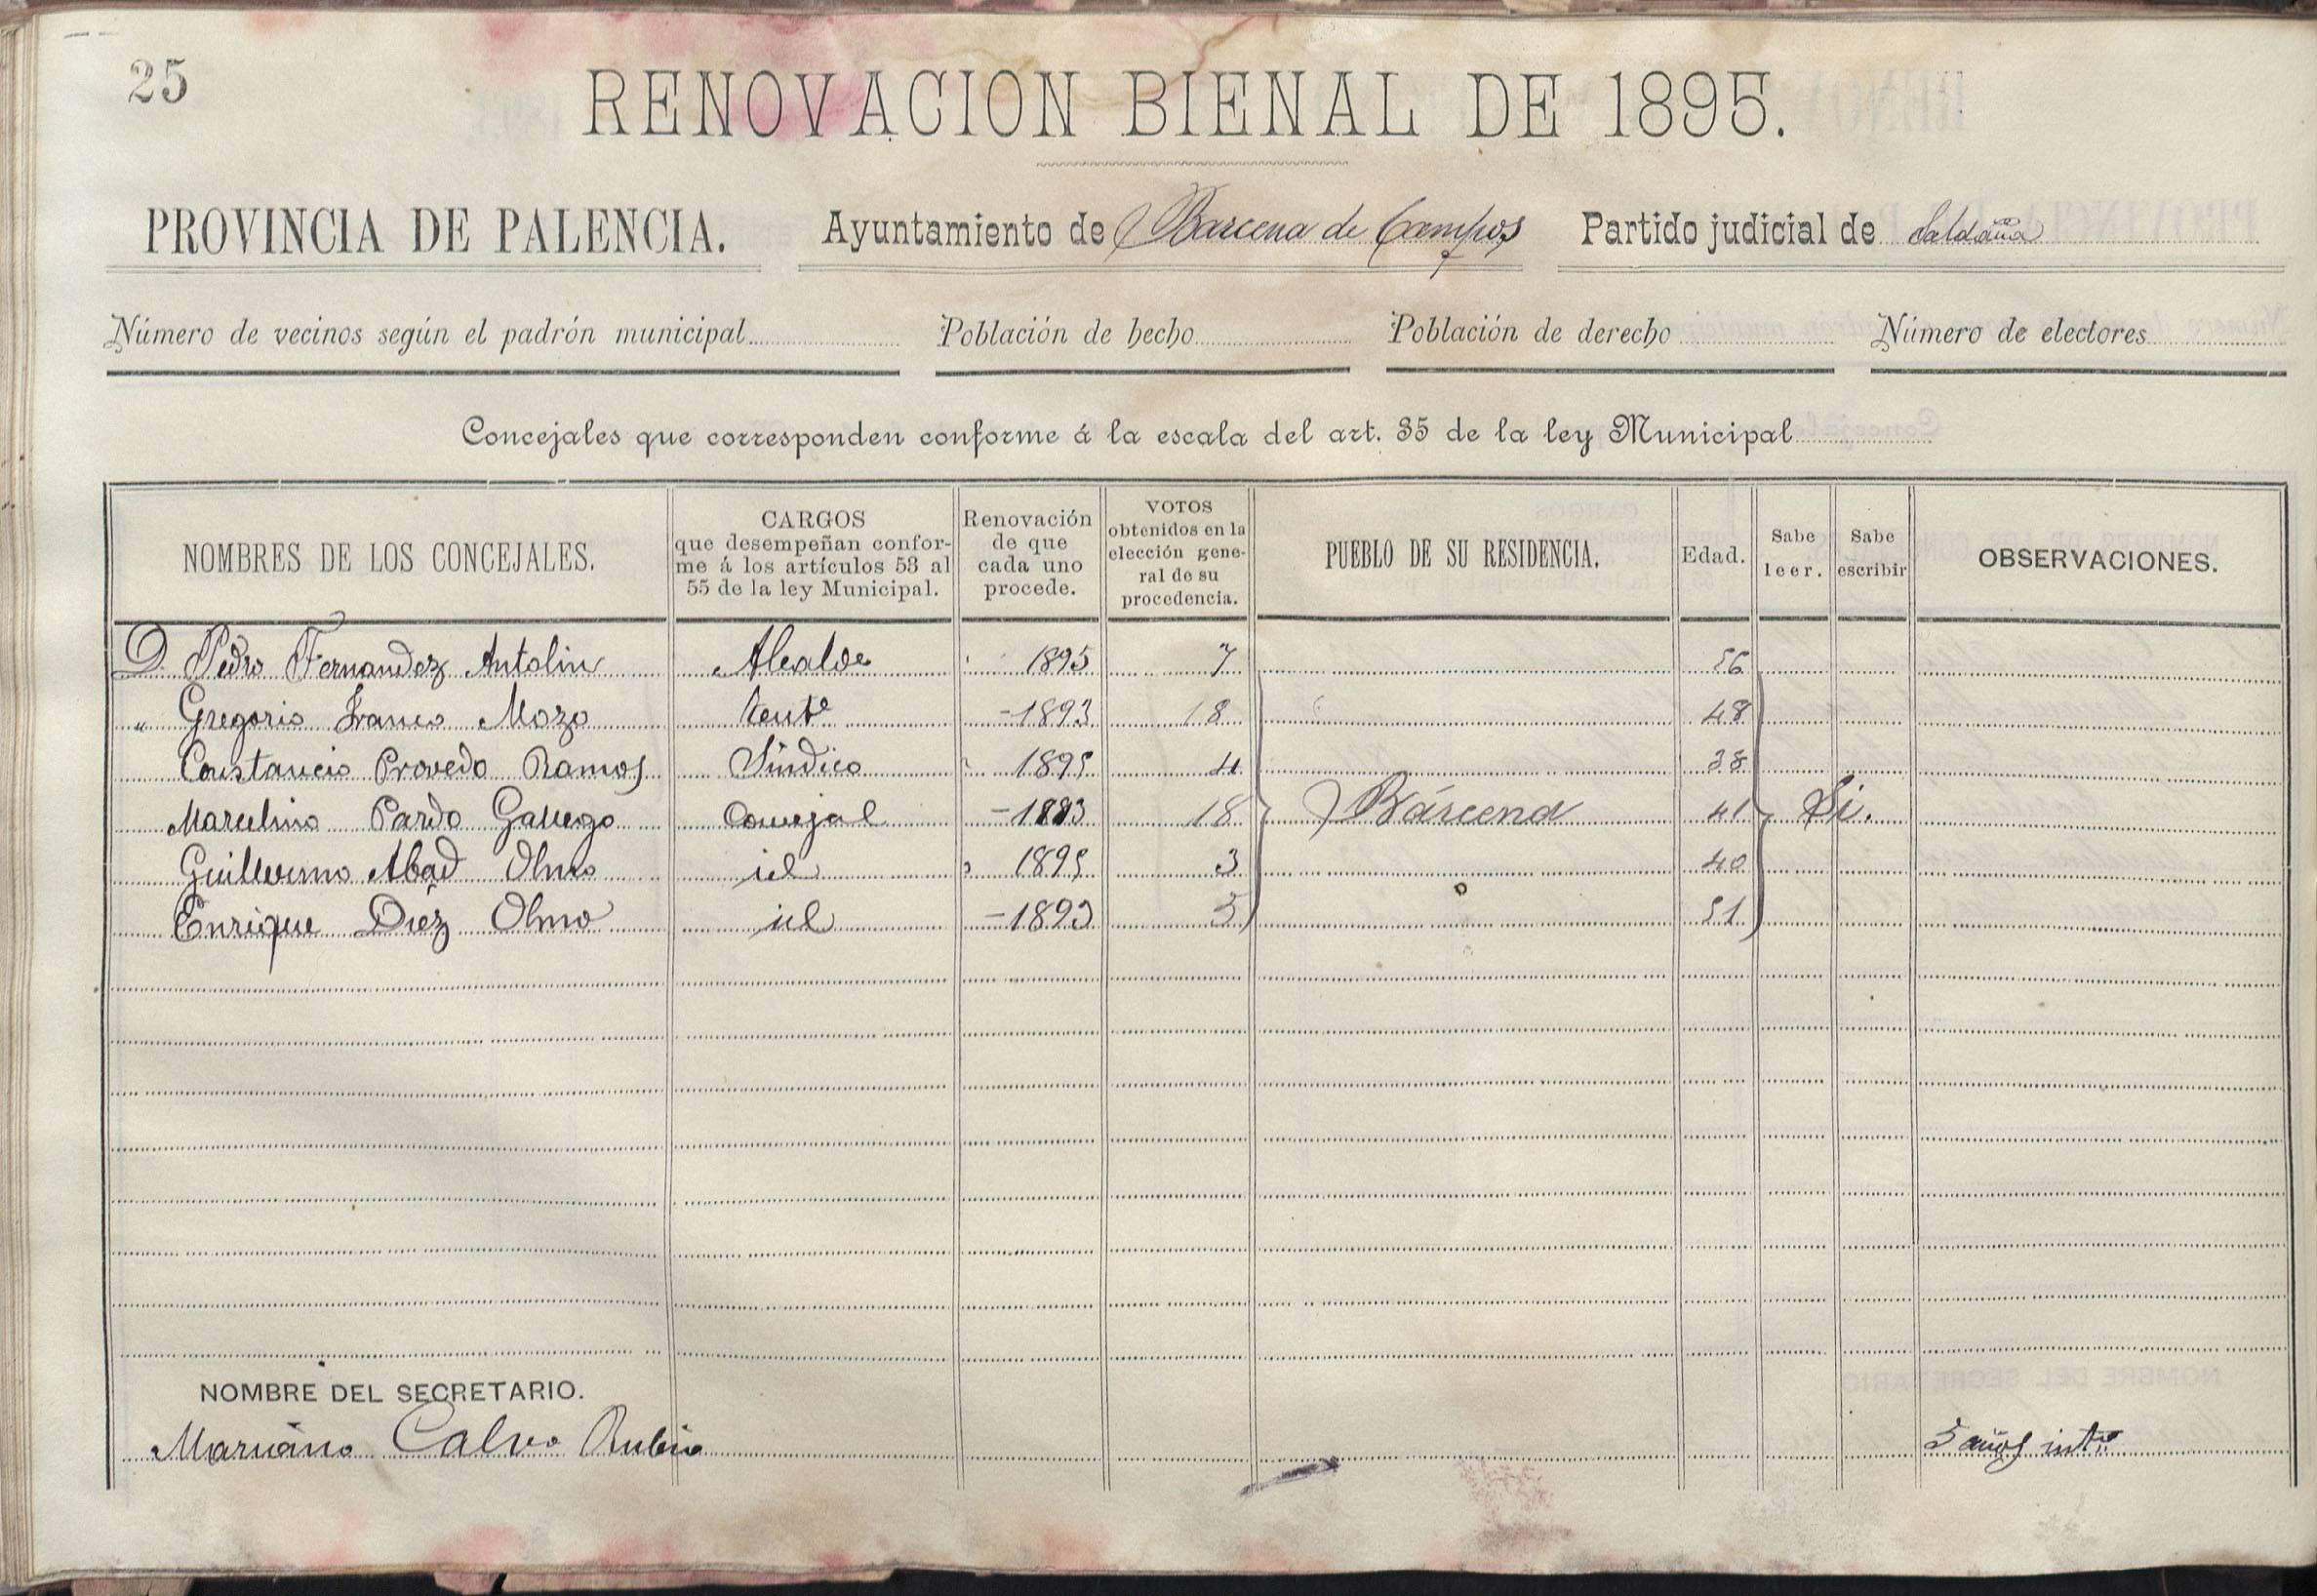 25
RENOVACION BIENAL DE 1895.
PROVINCIA DE PALENCIA. Ayuntamiento de Barcena de Campos Partido judicial de Saldaña
Número de vecinos según el padrón municipal Población de hecho Población de derecho Número de electores
Concejales que corresponden conforme á la escala del art. 35 de la ley Municipal
NOMBRES DE LOS CONCEJALES. CARGOS que desempeñan conforme á los artículos 53 al 55 de la ley Municipal. Renovación de que cada uno procede. VOTOS obtenidos en la elección general de su procedencia. PUEBLO DE SU RESIDENCIA. Edad. Sabe leer. Sabe escribir OBSERVACIONES.
D. Pedro Fernandez Antolin Alcalde 1895 7 56
" Gregorio Franco Mozo Tente 1893 18 48
Constancio Provedo Ramos Síndico 1895 4 38
Marcelino Pardo Gallego Concejal 1893 18 Bárcena 41 Si.
Guillermo Abad Olmo id 1895 3 40
Enrique Diez Olmo id 1893 5 51
NOMBRE DEL SECRETARIO.
Mariano Calvo Rubio 5 años int.º